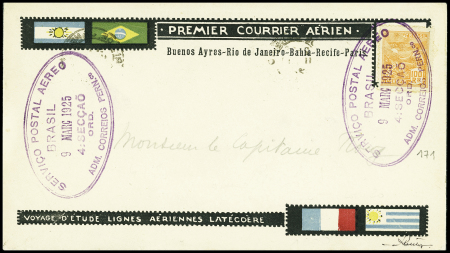 PREMIER COURRIER AÉRIEN.
Buenos Ayres-Rio de Janeiro-Bahia-Recife-Paris
SERVIÇO POSTAL AEREO
BRASIL
9 MARÇ 1925
4. SECÇAO
ORD.
ADM. CORREIOS PERN.co
SERVIÇO POSTAL AEREO
BRASIL
9 MARÇ 1925
4. SECÇAO
ORD.
ADM. CORREIOS PERN.co
Monsieur le Capitaine
171
VOYAGE D'ÉTUDE LIGNES AÉRIENNES LATÉCOÈRE